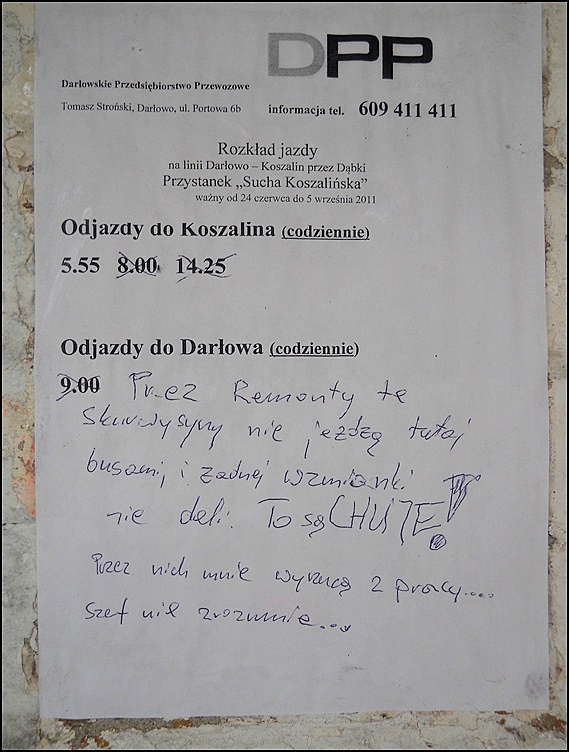 DPP
Darłowskie Przedsiębiorstwo Przewozowe
Tomasz Stroński, Darłowo, ul. Portowa 6b informacja tel. 609 411 411
Rozkład jazdy
na linii Darłowo – Koszalin przez Dąbki
Przystanek „Sucha Koszalińska”
ważny od 24 czerwca do 5 września 2011
Odjazdy do Koszalina (codziennie)
5.55 8.00 14.25
Odjazdy do Darłowa (codziennie)
9.00 Przez Remonty te
skurwysyny nie jeżdżą tutaj
busami, i żadnej wzmianki
nie dali. To są CHUJE!
Przez nich mnie wyrzucą z pracy....
szef nie zrozumie...